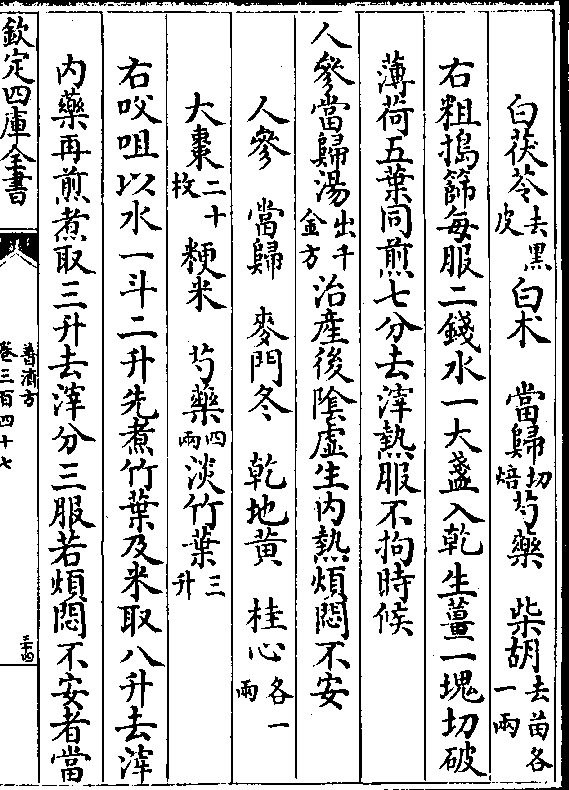 白茯苓去黑皮白术　當歸切焙芍藥　柴胡去苗各一兩
右粗搗篩每服二錢水一大盞入乾生薑一塊切破
薄荷五葉同煎七分去滓熱服不拘時候
人參當歸湯出千金方治産後陰虛生内熱煩悶不安
人參　當歸　麥門冬　乾地黄　桂心各一兩
大棗二十枚粳米　芍藥四兩淡竹葉三升
右㕮咀以水一斗二升先煮竹葉及米取八升去滓
内藥再煎煮取三升去滓分三服若煩悶不安者當
欽定四庫全書
普濟方
卷三百四十七
三十四